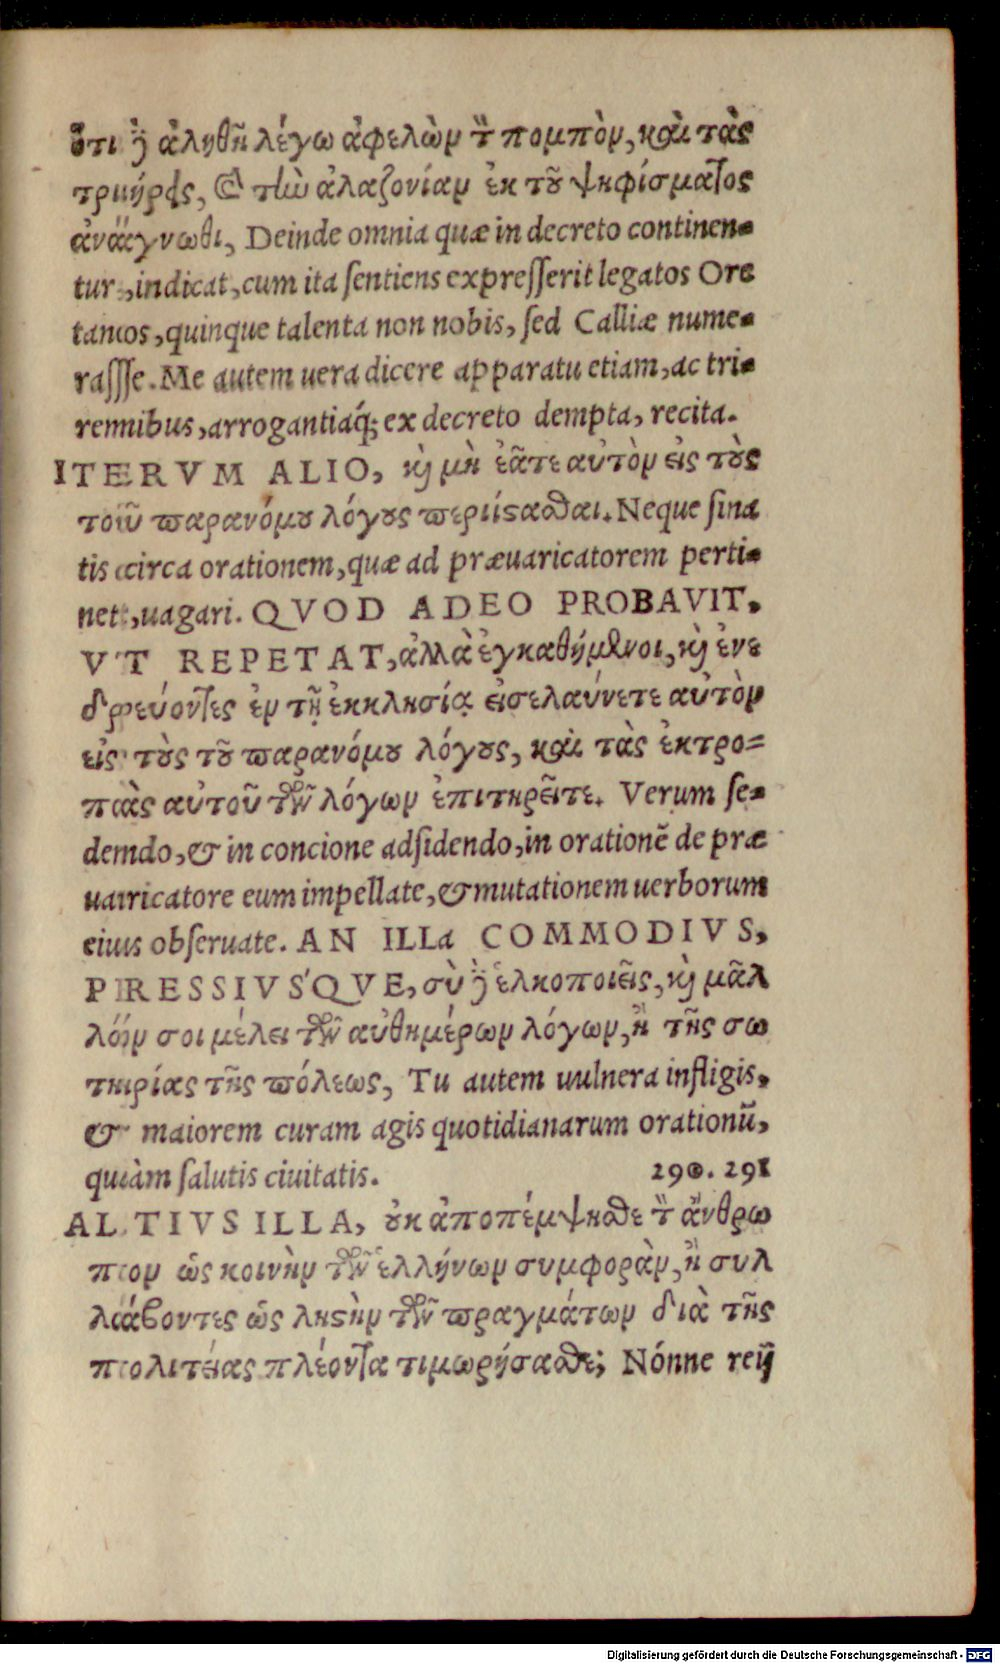 ὅτι δὲ ἀληθῆ λέγω ἀφελὼν τὸν πομπὸν, καὶ τὰς
τριήρεις, καὶ τὴν ἀλαζονίαν ἐκ τοῦ ψηφίσματος
ἀνάγνωθι, Deinde omnia quæ in decreto continen-
tur, indicat, cum ita sentiens expresserit legatos Ore
tanos, quinque talenta non nobis, sed Calliæ nume-
rasse. Me autem uera dicere apparatu etiam, ac tri-
remibus, arrogantiaq́; ex decreto dempta, recita.
ITERVM ALIO, κὶ μὴ ἐᾶτε αὐτὸν εἰς τοὺς
τοῦ παρανόμου λόγους περιίστασθαι. Neque sina
tis circa orationem, quæ ad præuaricatorem perti-
net, uagari. QVOD ADEO PROBAVIT,
VT REPETAT, ἀλλὰ ἐγκαθήμενοι, κὶ ἐνε
δρεύοντες ἐν τῇ ἐκκλησίᾳ εἰσελαύνετε αὐτὸν
εἰς τοὺς τοῦ παρανόμου λόγους, καὶ τὰς ἐκτρο=
πὰς αὐτοῦ τῶν λόγων ἐπιτηρεῖτε. Verum se-
dendo, & in concione adsidendo, in orationẽ de præ
uaricatore eum impellate, & mutationem uerborum
eius obseruate. AN ILLa COMMODIVS,
PRESSIVS'QVE, σὺ δὲ ἑλκοποιεῖς, κὶ μᾶλ
λόν σοι μέλει τῶν αὐθημέρων λόγων, ἢ τῆς σω
τηρίας τῆς πόλεως, Tu autem uulnera infligis,
& maiorem curam agis quotidianarum orationũ,
quàm salutis ciuitatis. 290. 291
ALTIVS ILLA, οὐκ ἀποπέμψησθε τὸν ἄνθρω
πον ὡς κοινὴν τῶν ἑλλήνων συμφορὰν, ἢ συλ
λάβοντες ὡς ληστὴν τῶν πραγμάτων διὰ τῆς
πολιτείας πλέοντα τιμωρήσασθε; Nónne reij
Digitalisierung gefördert durch die Deutsche Forschungsgemeinschaft - DFG